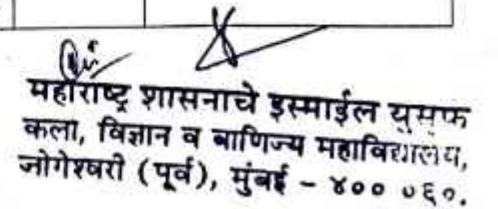 महाराष्ट्र शासनाचे इस्माईल युसुफ
कला, विज्ञान व वाणिज्य महाविद्यालय,
जोगेश्वरी (पूर्व), मुंबई - ४०० ०६०.